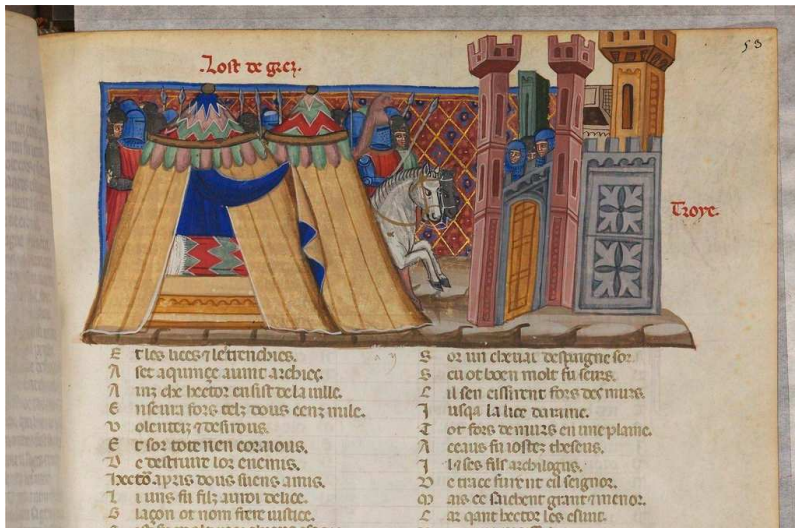 Lost de grez.
53
Troye.
E t les lices ⁊ le trenchies.
A set aquinçe auint archies.
A inz che hector ensist de la uille.
E nseura fors telz dous cenz mile.
V olenteiz ⁊ desirous.
E t sor tote rien coraious.
D e destruire lor enemis.
Hector apris dous suens amis.
L i uns fu filz au roi delice.
G laçon ot nom frere iustice.
S or un cheual despaigne sor.
S eu ot boen molt fu seurs.
C il sen eissirent fors des murs.
J usqa la lice
T ot fors de murs en une plaine.
A ceaus fu iostez theseus.
J l ⁊ ses filz archilogus.
D e trace furent cil seignor.
M ais ce sachent grant ⁊ menor.
C ar qant hector les